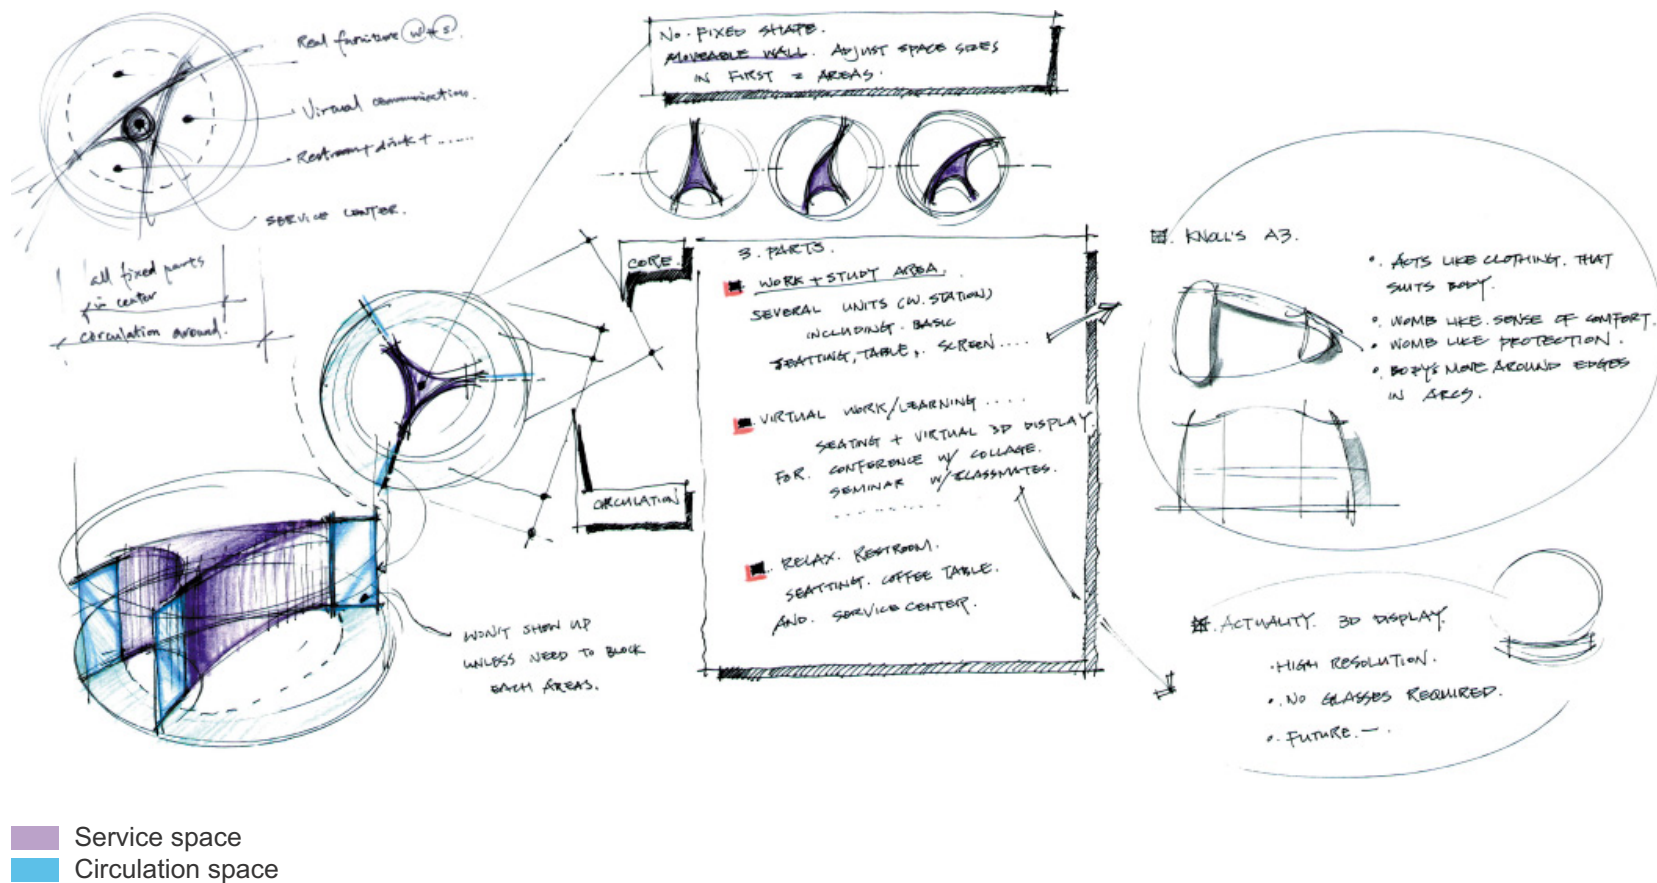 Real furniture (w + s).
Virtual communication.
Restroom + drink + ......
SERVICE CENTER.
all fixed parts
in center
circulation around.
NO. FIXED SHAPE.
MOVEABLE WALL. ADJUST SPACE SIZES
IN FIRST 2 AREAS.
CORE.
CIRCULATION
3. PARTS.
WORK + STUDY AREA.
SEVERAL UNITS (W. STATION)
INCLUDING. BASIC
SEATTING, TABLE, SCREEN....
VIRTUAL WORK/LEARNING ....
SEATING + VIRTUAL 3D DISPLAY.
FOR. CONFERENCE W/ COLLAGE.
SEMINAR W/CLASSMATES.
..........
RELAX. RESTROOM.
SEATTING. COFFEE TABLE.
AND. SERVICE CENTER.
WON'T SHOW UP
UNLESS NEED TO BLOCK
EACH AREAS.
KNOLL'S A3.
• ACTS LIKE CLOTHING. THAT
SUITS BODY.
• WOMB LIKE. SENSE OF COMFORT.
• WOMB LIKE PROTECTION.
• BODY'S MOVE AROUND EDGES
IN ARCS.
ACTUALITY. 3D DISPLAY.
• HIGH RESOLUTION.
• NO GLASSES REQUIRED.
• FUTURE. —
Service space
Circulation space